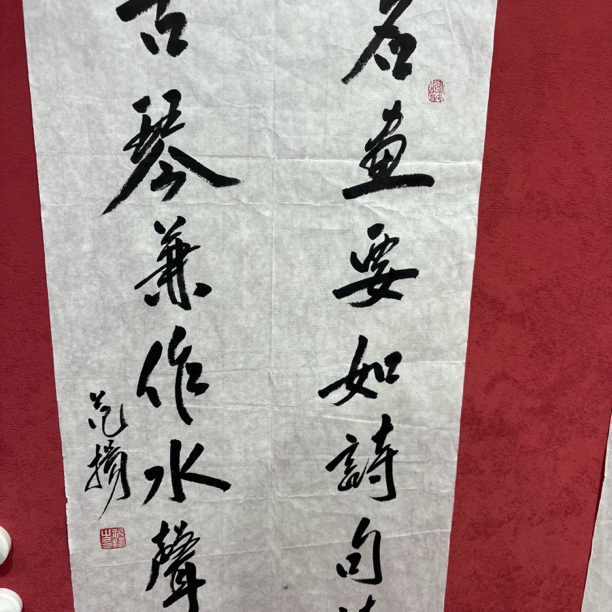 名畫要如詩句
古琴兼作水聲
范